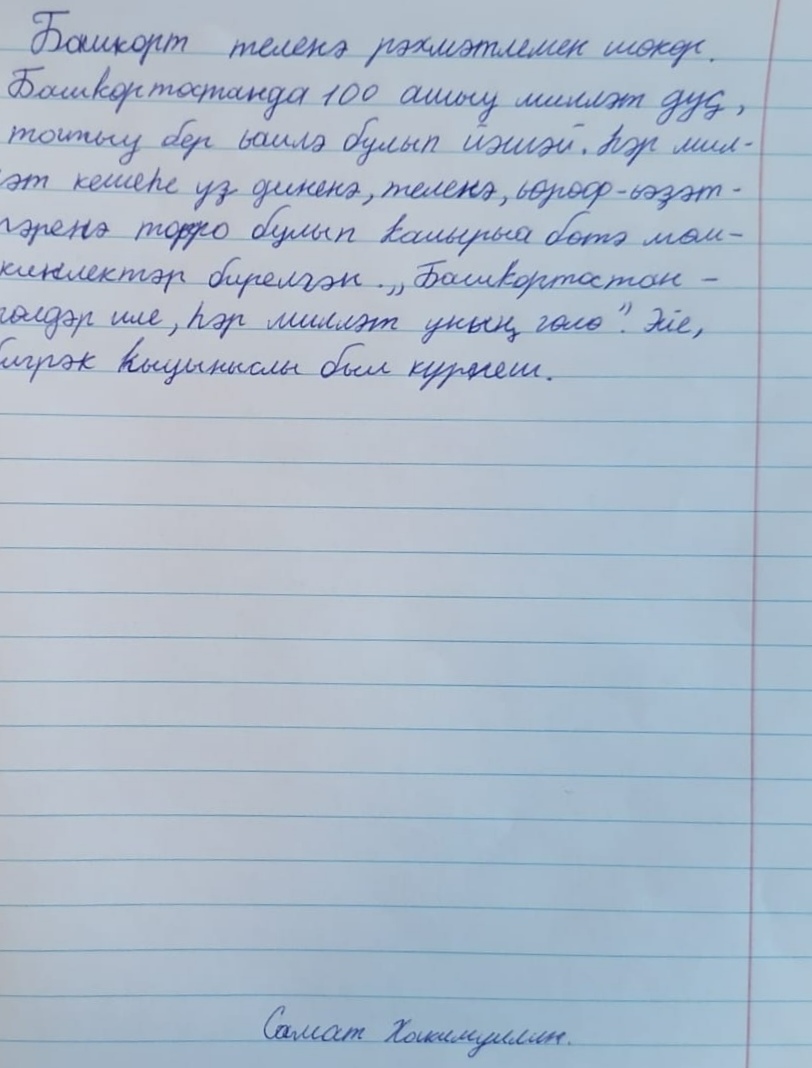 Башкорт теленә рәхмәтлемен шөкөр.
Башкортостанда 100 ашыу милләт дуҫ,
тотыу бер ғаилә булып йәшәй. Һәр мил-
ләт кешеһе үҙ диненә, теленә, ғөрөф-ғәҙәт-
тәренә тоғро булып калырға бөтә мөм-
кинлектәр бирелгән. „Башкортостан -
гөлдәр иле, һәр милләт уның гөлө". Эйе,
бигрәк кыуаныслы был күренеш.
Самат Хакимуллин.